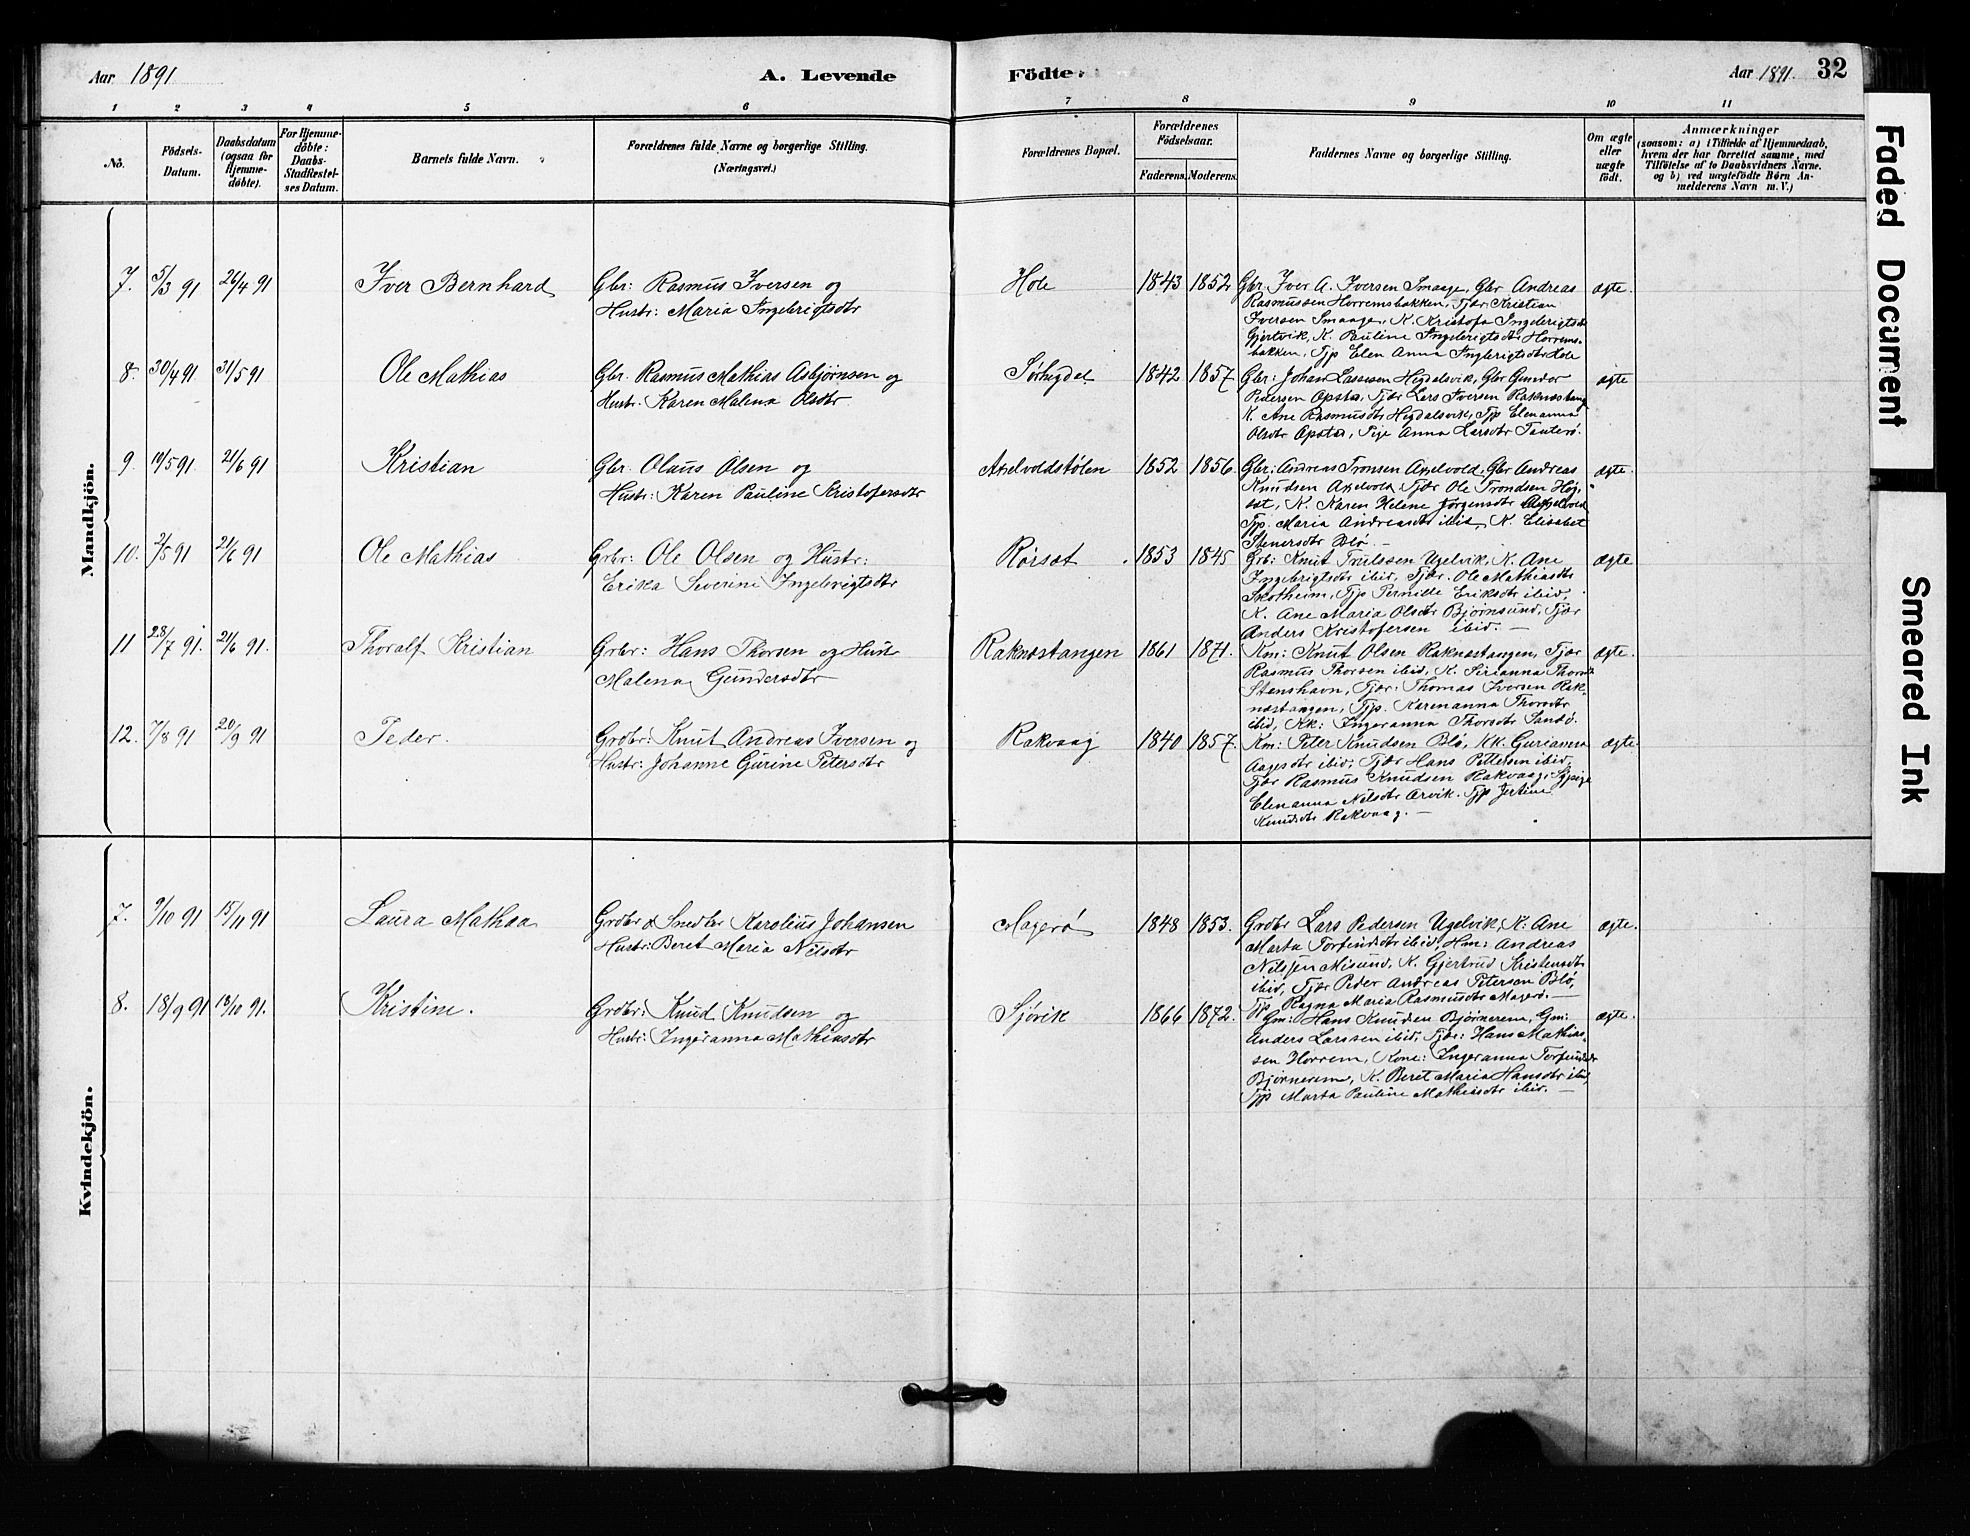 Aar 1891
A. Levende
Födte.
Aar 1891.
32
1 2 3 4 5 6 7 8 9 10 11
No.
Födsels-
Datum.
Daabsdatum
(ogsaa for
Hjemme-
döbte).
For Hjemme-
döbte:
Daabs-
Stadfæstel-
ses Datum.
Barnets fulde Navn.
Forældrenes fulde Navne og borgerlige Stilling.
(Næringsvei.)
Forældrenes Bopæl.
Forældrenes
Födselsaar.
Faderens. Moderens.
Faddernes Navne og borgerlige Stilling.
Om ægte
eller
uægte
födt.
Anmærkninger
(saasom: a) i Tilfælde af Hjemmedaab,
hvem der har forrettet samme, med
Tilföielse af to Daabsvidners Navne.
og b) ved uægtefödte Börn An-
melderens Navn m. V.)
Mandkjön.
7. 5/3 91 26/4 91 Iver Bernhard
Gbr: Rasmus Iversen og
Hustr: Maria Ingebrigtsdtr
Hole 1843 1852
Gbr. Iver A. Iversen Smaage, Gbr Andreas
Rasmussen Horremsbakken, Tjær Kristian
Iversen Smaage, K. Kristofa Ingebrigtsdtr
Gjertvik, K. Pauline Ingebrigtsdtr Horrems-
bakken, Tjp Elen Anna Ingebrigtsdtr Hole
ægte.
8. 30/4 91 31/5 91 Ole Mathias
Gbr. Rasmus Mathias Asbjørnsen og
Hustr. Karen Malena Olsdtr
Sørhegdal 1842 1857
Gbr: Johan Lassesen Hegdalsvik, Gbr Gundor
Pedersen Opstad, Tjær Lars Iversen Raknæstang
K Ane Rasmusdtr Hegdalsvik, Tjp Elenanna
Olsdtr Opstad, Pige Anna Larsdtr Tauterø.
ægte
9. 19/5 91. 21/6 91 Kristian
Gbr. Olaus Olsen og
Hustr: Karen Pauline Kristofersdtr
Axelvoldstølen 1852 1856
Gbr: Andreas Tronsen Axelvold, Gbr Andreas
Knudsen Axelvold Tjær Ole Trondsen Høj-
set, K. Karen Helene Jørgensdtr Axelvold
Tjp. Maria Andreasdtr ibid, K. Elisabet
Stenersdtr Blø. —
ægte.
10. 2/5 91 21/6 91 Ole Mathias
Grbr: Ole Olsen og Hustr:
Erika Severine Ingebrigtsdtr
Rørset 1853 1845
Grb: Knut Trulssen Ugelvik, K. Ane
Ingebrigtsdtr ibid, Tjær. Ole Mathiasdtr
Skotheim, Tjp Pernille Eriksdtr ibid,
K. Ane Maria Olsdtr Bjørnsund, Tjær
Anders Kristofersen ibid. —
ægte
11 28/7 91. 21/6 91. Thoralf Kristian
Grbr: Hans Thorsen og Hust
Malena Gundersdtr
Raknæstangen 1861 1871.
Km: Knut Olsen Raknæstangen, Tjær
Rasmus Thorsen ibid, K. Sirianna Thorsdtr
Stenshavn, Tjær: Thomas Iversen Rak-
næstangen, Tjp. Karenanna Thorsdtr
ibid, Kk: Ingeranna Thorsdtr Sandø.
ægte.
12. 7/8 91 20/9 91 Peder.
Grdbr: Knut Andreas Iversen og
Hustr: Johanne Gurine Petersdtr
Rakvaag 1840 1857.
Km: Peter Knudsen Blø, KK. Gurianna
Aagesdtr ibid, Tjær Hans Pettersen ibid,
Tjær Rasmus Knudsen Rakvaag,
Elenanna Nilsdtr Orvik. Tjp Jertine
Knudsdtr Rakvaag. —
ægte
Kvindekjön.
7. 9/10 91 15/11 91 Laura Mathea
Grdbr & Snedker Karolius Johansen
Hustr: Beret Maria Nilsdtr
Magerø 1848 1853.
Grdbr Lars Pedersen Ugelvik, K: Ane
Marta Torfinsdtr ibid, Hm: Andreas
Nilssen Misund, K. Gjertrud Kristensdtr
ibid, Tjær Peder Andreas Petersen Blø,
Tjp Ragna Maria Rasmusdtr Magerø. —
ægte.
8. 18/9 91 18/10 91. Kristine.
Grdbr: Knud Knudsen og
Hustr: Ingeranna Mathiasdtr
Sjøvik 1866 1872.
Gm: Hans Knudsen Bjørnerem, Gm:
Anders Larssen ibid, Tjær: Hans Mathias-
sen Horrem, Kone: Ingeranna Torfindsdtr
Bjørnerem, K. Beret Maria Hansdtr ibid,
Tjp Marta Pauline Mathiasdtr ibid. —
ægte.
Faded Document
Smeared Ink